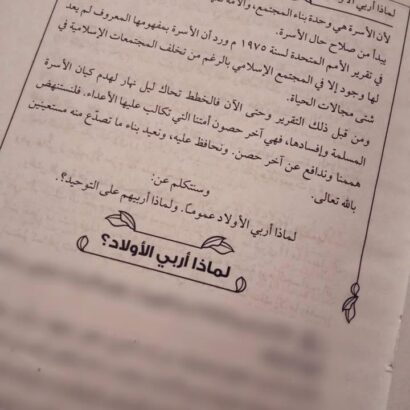 لماذا أربي الأو
لأن الأسرة هي وحدة بناء المجتمع، والأمة
يبدأ من صلاح حال الأسرة.
في تقرير الأمم المتحدة لسنة ١٩٧٥ م ورد أن الأسرة بمفهومها المعروف لم يعد
لها وجود إلا في المجتمع الإسلامي بالرغم من تخلف المجتمعات الإسلامية في
شتى مجالات الحياة.
ومن قبل ذلك التقرير وحتى الآن فالخطط تحاك ليل نهار لهدم كيان الأسرة
المسلمة وإفسادها، فهي آخر حصون أمتنا التي تكالب عليها الأعداء. فلنستنهض
هممنا وندافع عن آخر حصن. ونحافظ عليه، ونعيد بناء ما تصدّع منه مستعينين
بالله تعالى.
وسنتكلم عن:
لماذا أربي الأولاد عموما. ولماذا أربيهم على التوحيد؟.
لماذا أربي الأولاد؟